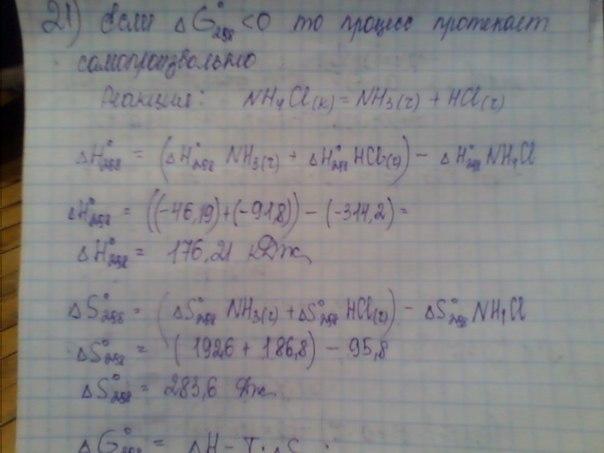 21) Если ΔG°298 <0 то процесс протекает
самопроизвольно
Реакция: NH4Cl(к) = NH3(г) + HCl(г)
ΔH°298 = (ΔH°298 NH3(г) + ΔH°298 HCl(г)) − ΔH°298 NH4Cl
ΔH°298 = ((-46,19)+(-91,8)) − (-314,2) =
ΔH°298 = 176,21 кДж
ΔS°298 = (ΔS°298 NH3(г) + ΔS°298 HCl(г)) − ΔS°298 NH4Cl
ΔS°298 = (192,6 + 186,8) − 95,8
ΔS°298 = 283,6 Дж
ΔG°298 = ΔH − T·ΔS